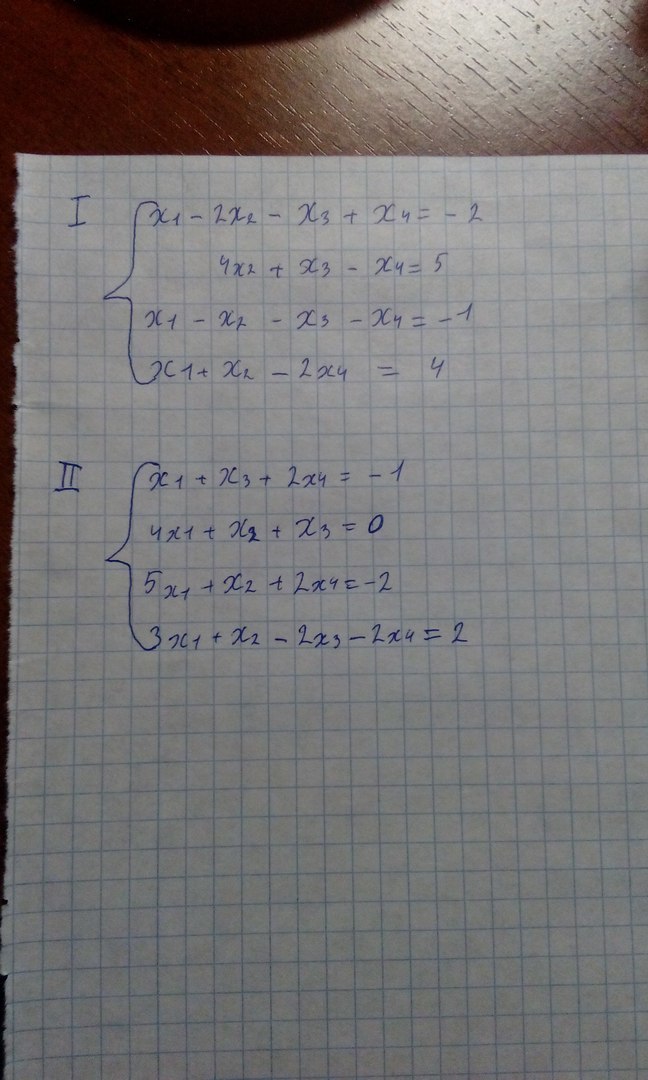 I x1 - 2x2 - x3 + x4 = -2
4x2 + x3 - x4 = 5
x1 - x2 - x3 - x4 = -1
x1 + x2 - 2x4 = 4
II x1 + x3 + 2x4 = -1
4x1 + x2 + x3 = 0
5x1 + x2 + 2x4 = -2
3x1 + x2 - 2x3 - 2x4 = 2